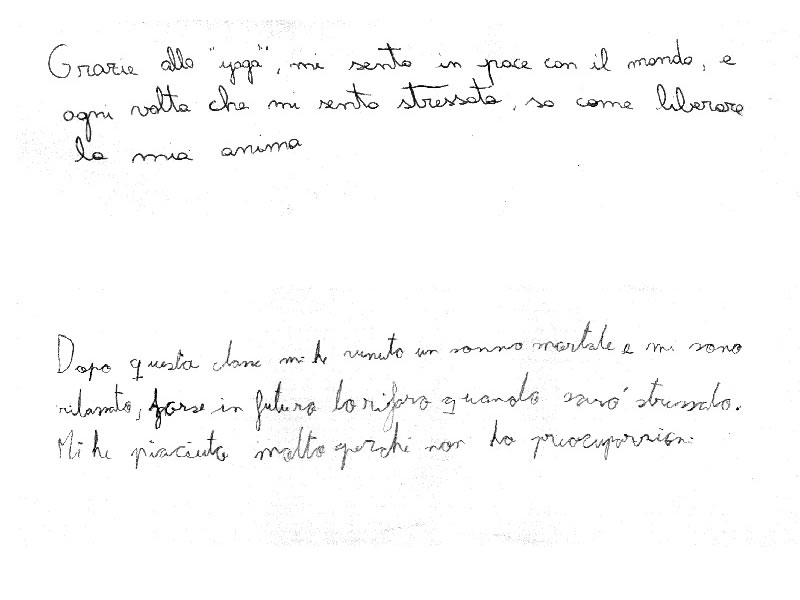 Grazie allo "yoga", mi sento in pace con il mondo, e
ogni volta che mi sento stressata, so come liberare
la mia anima
Dopo questa classe mi he venuto un sonno mortale e mi sono
rilassato, forse in futuro lo rifaro quando sarò stressato.
Mi he piaciuto molto perchi non ho preocuparzioni